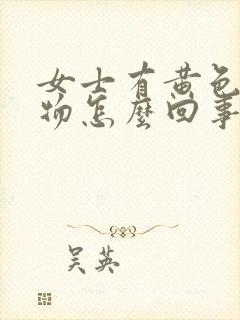 女士有黄色
物怎麼回事
吴英